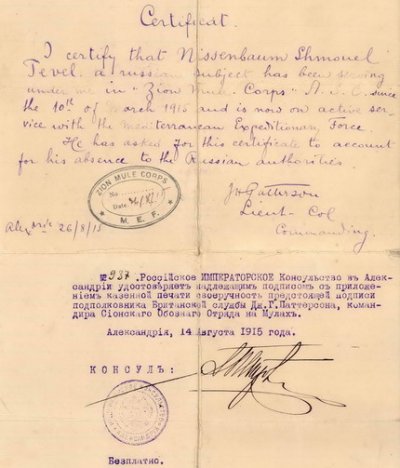 Certificat.
I certify that Nissenbaum Shmouel
Tevel. a russian subject has been serving
under me in "Zion Mule Corps" A.S.C. since
the 10th of March 1915 and is now on active ser-
vice with the Mediterranean Expeditionary Force.
He has asked for this certificate to account
for his absence to the Russian authorities.
JHPatterson
Lieut-Col
Commanding.
ZION MULE CORPS
No.
Date
M. E. F.
26/8/15
№ 937. Россійское ИМПЕРАТОРСКОЕ Консульство въ Алек-
сандріи удостовѣряетъ надлежащимъ подписомъ съ приложе-
ніемъ казенной печати своеручность предстоящей подписи
подполковника Британской службы Дж.Г.Паттерсона, Коман-
дира Сіонскаго Обознаго Отряда на Мулахъ.
Александрія, 14 Августа 1915 года.
КОНСУЛЪ:
Безплатно.